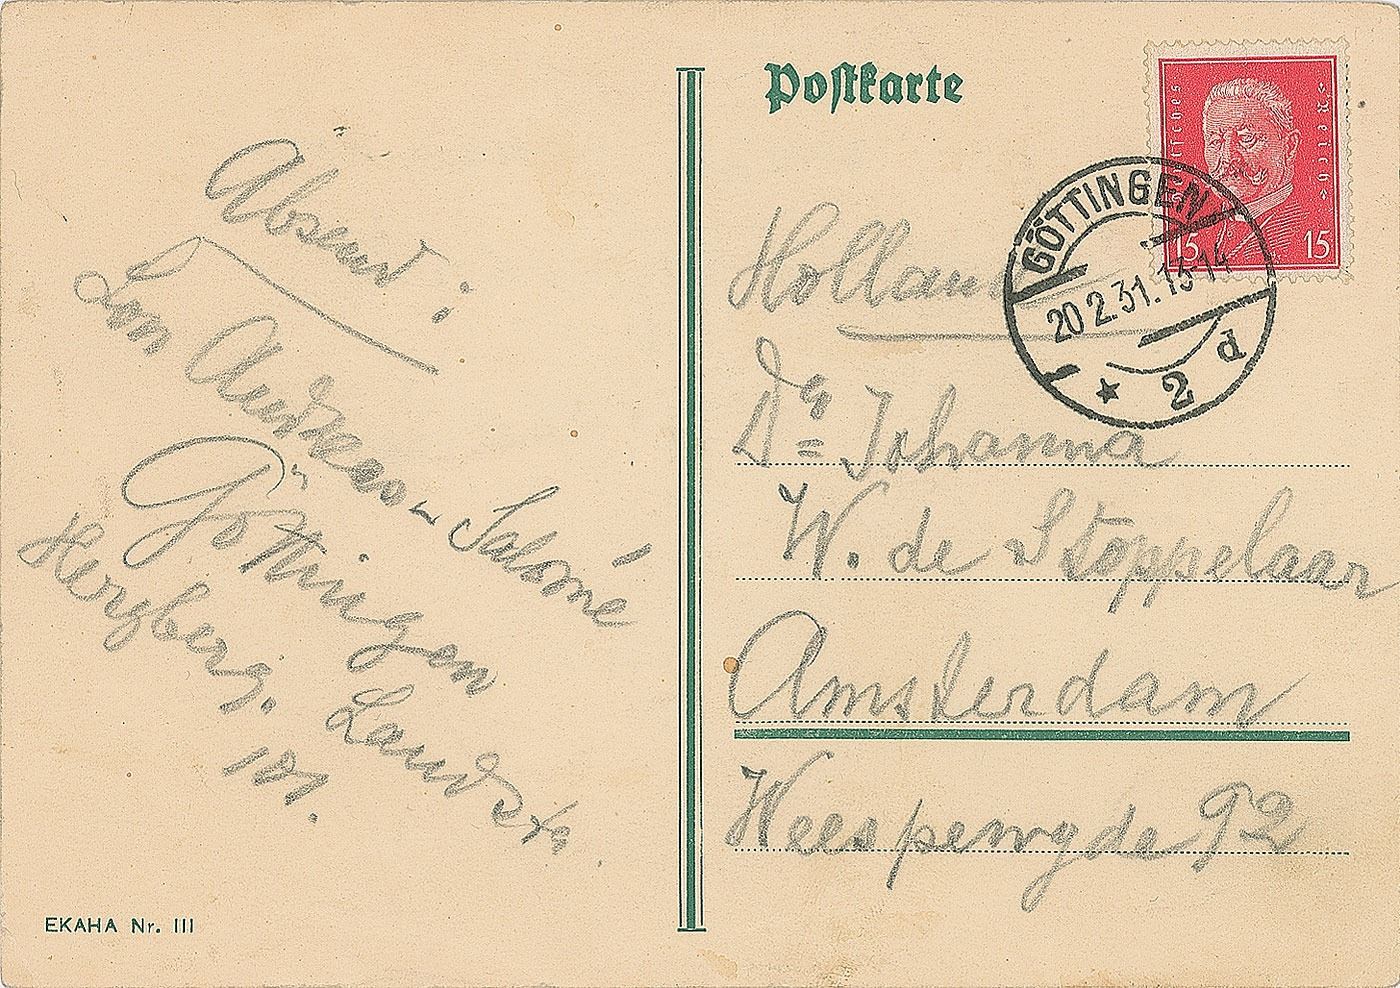 Absend:
Lou Andreas-Salomé
Göttingen
Herzberg. Landstr.
101.
EKAHA Nr. III
Postkarte
Deutsches Reich
15 15
GÖTTINGEN
20.2.31.13-14
* 2 d
Holland
Dr= Johanna
W. de Stoppelaar
Amsterdam
Weesperzyde 92